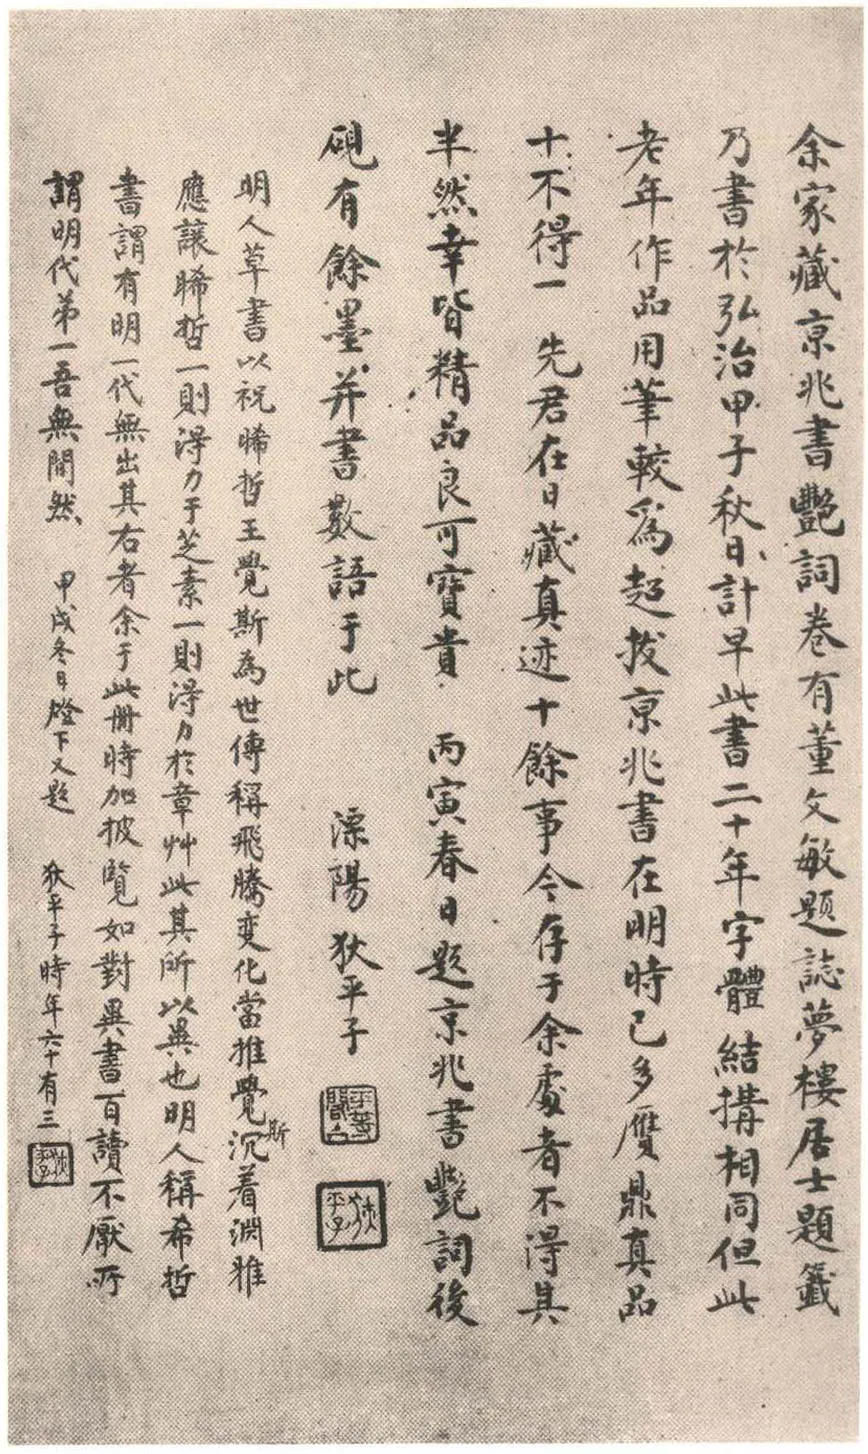 余家藏京兆書艷詞卷有董文敏題誌夢樓居士題籤
乃書於弘治甲子秋日計早此書二十年字體結搆相同但此
老年作品用筆較爲超拔京兆書在明時已多贋鼎真品
十不得一 先君在日藏真迹十餘事今存于余處者不得其
半然幸皆精品良可寶貴 丙寅春日題京兆書艷詞後
硯有餘墨并書數語于此 溧陽狄平子
平等閣主
狄平子
明人草書以祝睎哲王覺斯為世傳稱飛騰变化當推覺斯沉着淵雅
應讓睎哲一則淂力于芝素一則淂力於章艸此其所以異也明人稱希哲
書謂有明一代無出其右者余于此冊時加披覽如對異書百讀不厭所
謂明代弟一吾無間然 甲戌冬日燈下又題 狄平子時年六十有三
狄平子